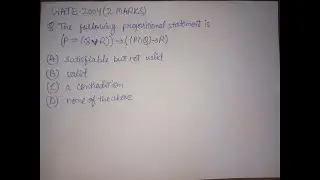 GATE 2004 (2 MARKS)
Q The following propositional statement is
(P → (Q ∨ R)) → ((P ∧ Q) → R)
(A) satisfiable but not valid
(B) valid
(C) a contradiction
(D) none of the above